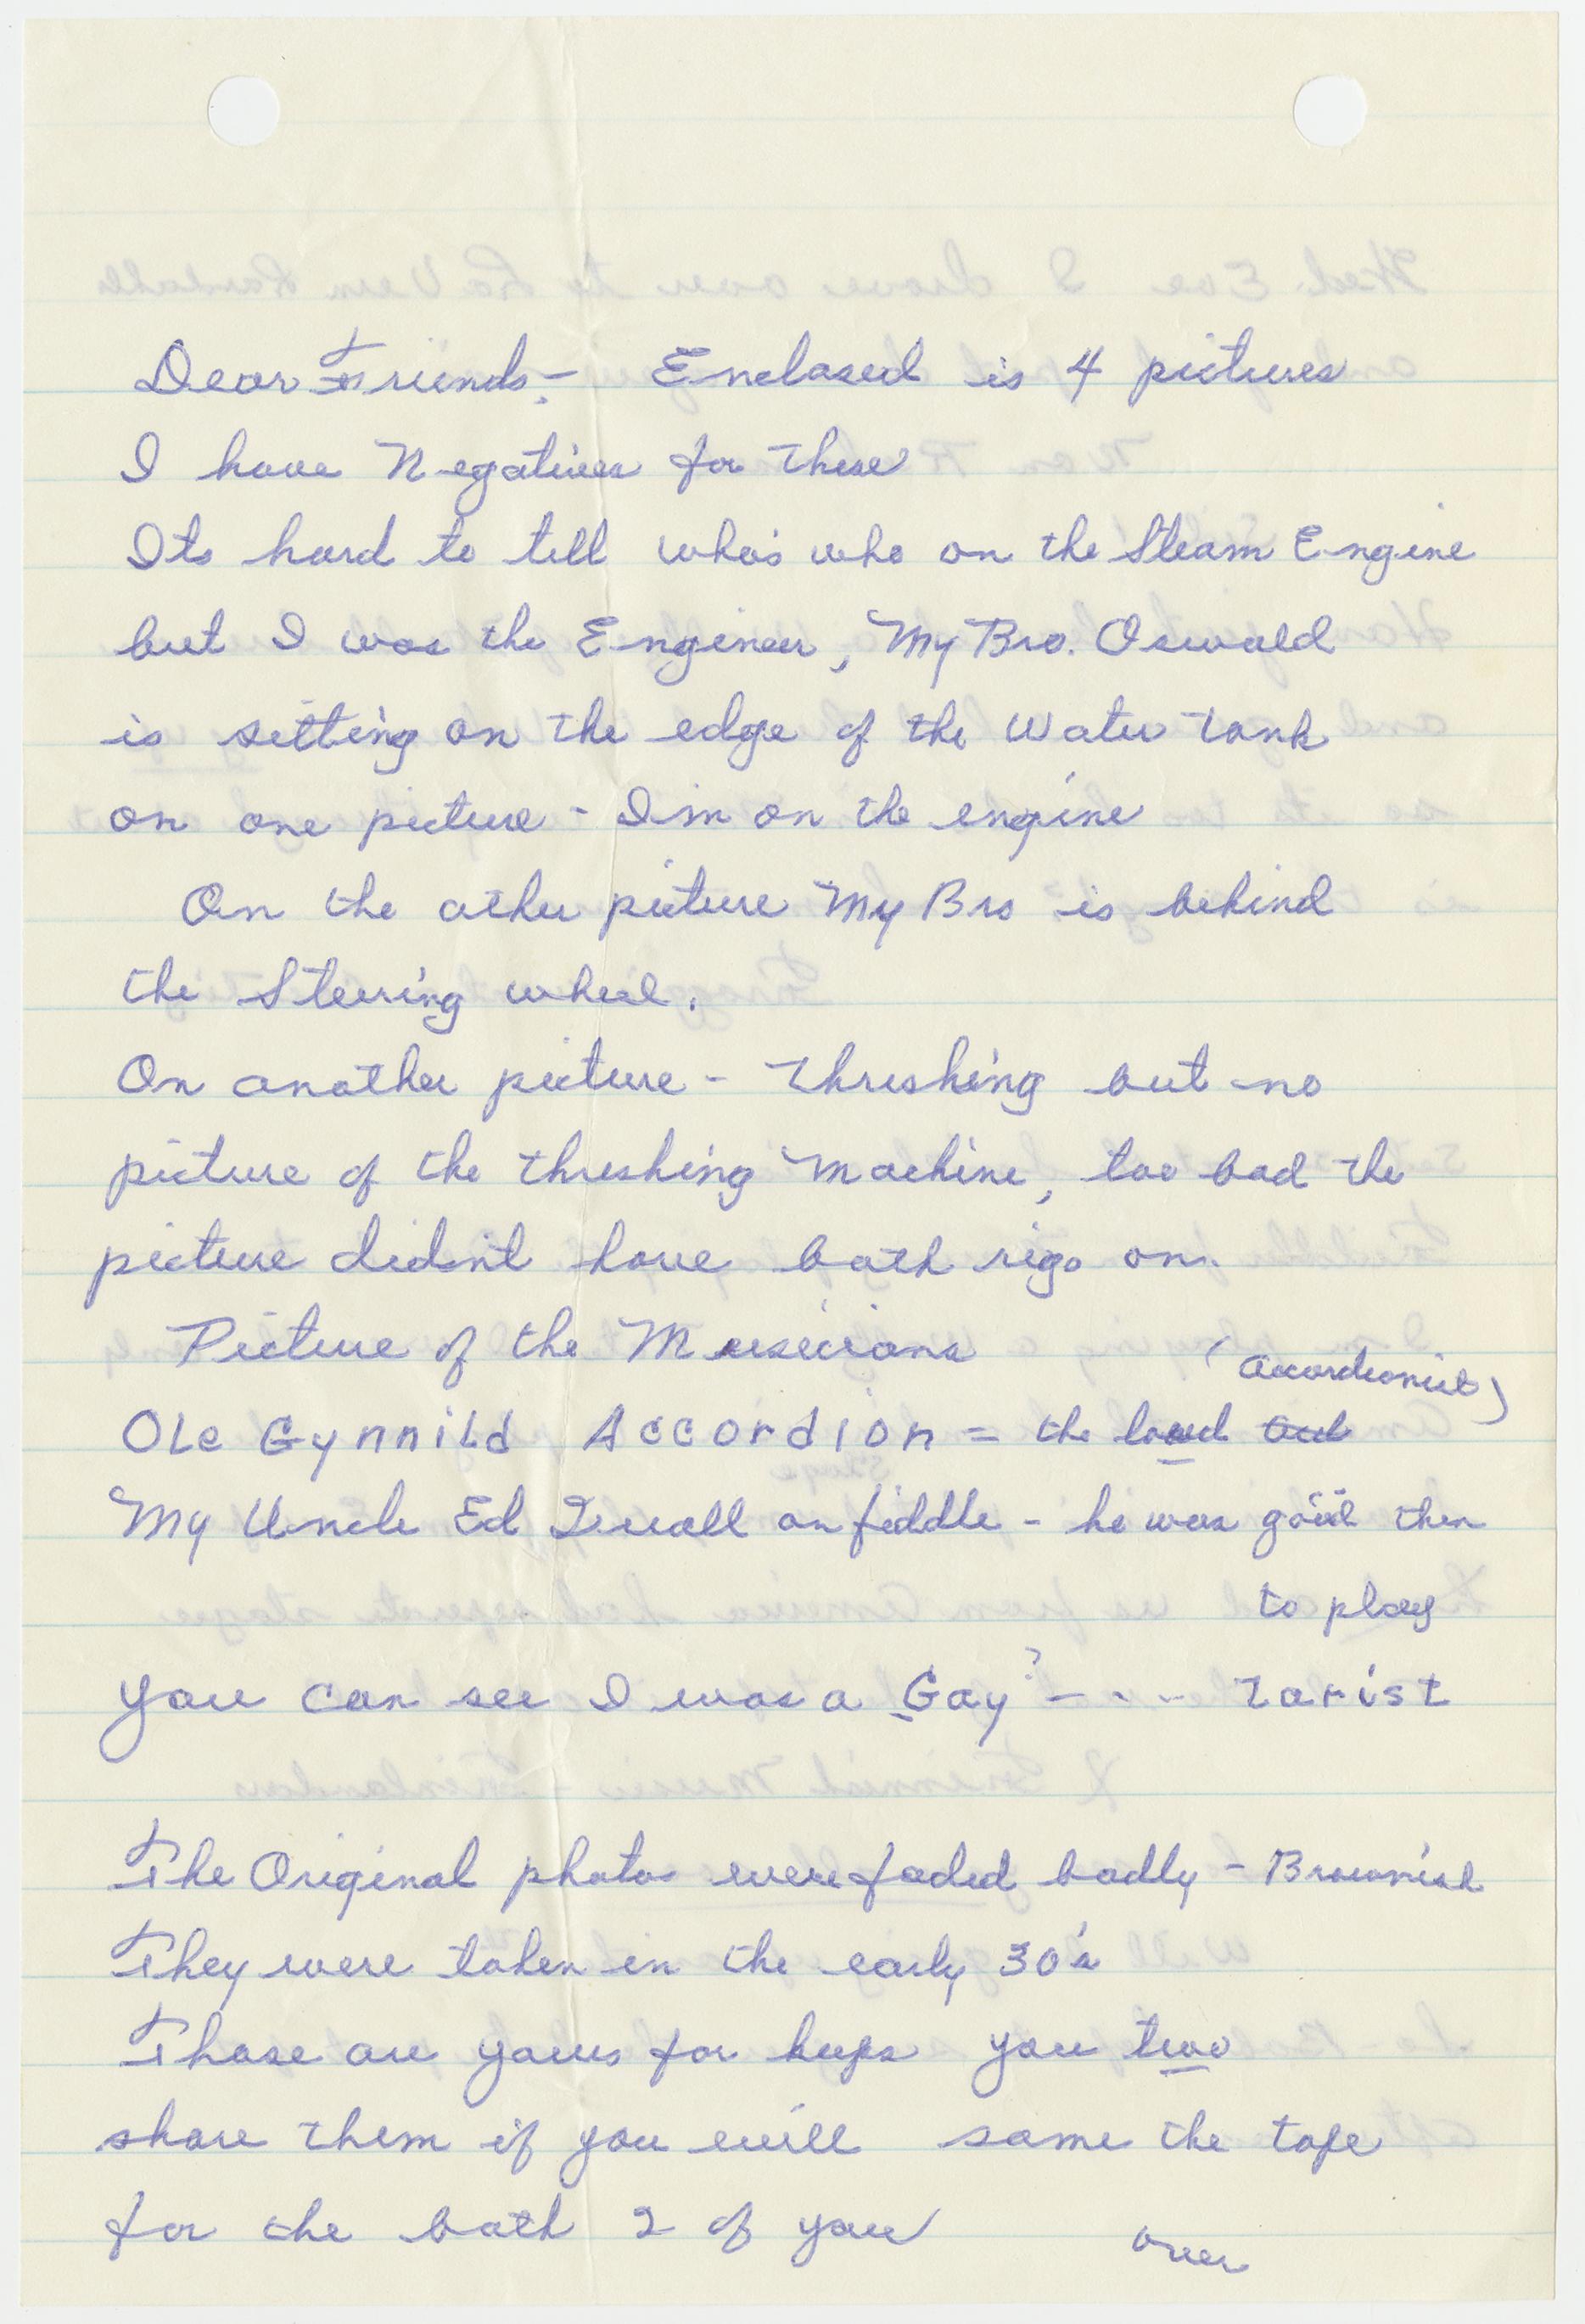 Dear Friends- Enclosed is 4 pictures
I have Negatives for these
Its hard to tell who's who on the Steam Engine
but I was the Engineer, My Bro. Oswald
is setting on the edge of the Water tank
on one picture - I'm on the engine
On the other picture My Bro is behind
the Steering wheel.
On another picture - threshing but no
picture of the threshing Machine, too bad the
picture didn't have both rigs on.
Picture of the Musicians
(accordionist)
Ole Gynnild Accordion = the loud
My Uncle Ed on fiddle - he was good then
to play
you can see I was a Gay? - - - tarist
The Original photos were faded badly - Brownish
They were taken in the early 30's
Those are yours for keeps you two
share them if you will same the tape
for the both 2 of you
over